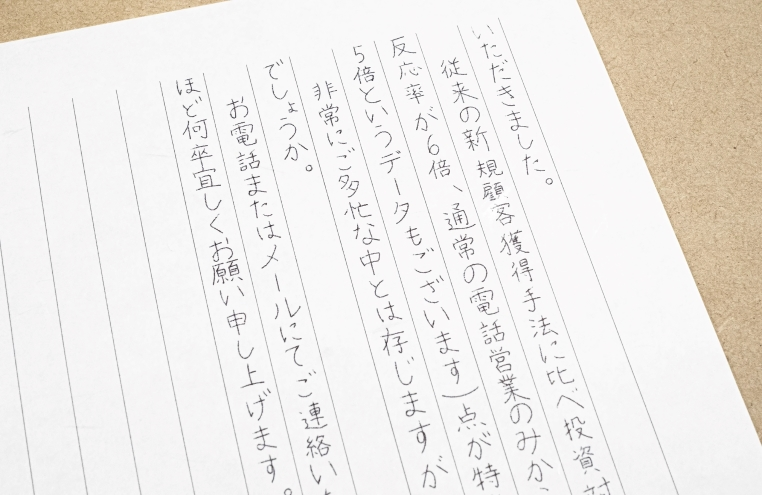 いただきました。
従来の新規顧客獲得手法に比べ投資対
反応率が6倍、通常の電話営業のみか、
5倍というデータもございます)点が特
非常にご多忙な中とは存じますが
でしょうか。
お電話またはメールにてご連絡い
ほど何卒宜しくお願い申し上げます。